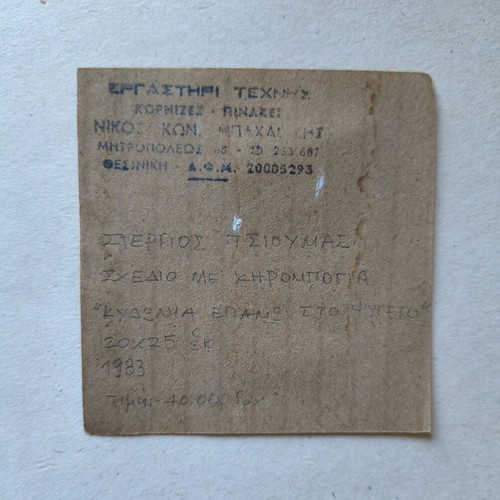 ΕΡΓΑΣΤΗΡΙ ΤΕΧΝΗΣ
ΚΟΡΝΙΖΕΣ - ΠΙΝΑΚΕΣ
ΝΙΚΟΣ ΚΩΝ.
ΜΗΤΡΟΠΟΛΕΩΣ
ΘΕΣ/ΝΙΚΗ - Α.Φ.Μ. 20005293
ΣΤΕΡΓΙΟΣ ΤΣΙΟΥΜΑΣ
ΣΧΕΔΙΟ ΜΕ ΚΗΡΟΜΠΟΓΙΑ
"ΚΥΔΩΝΙΑ ΕΠΑΝΩ ΣΤΟ ΨΥΓΕΙΟ"
20X25 ΕΚ
1983
Τιμή:- 40.000 δρχ